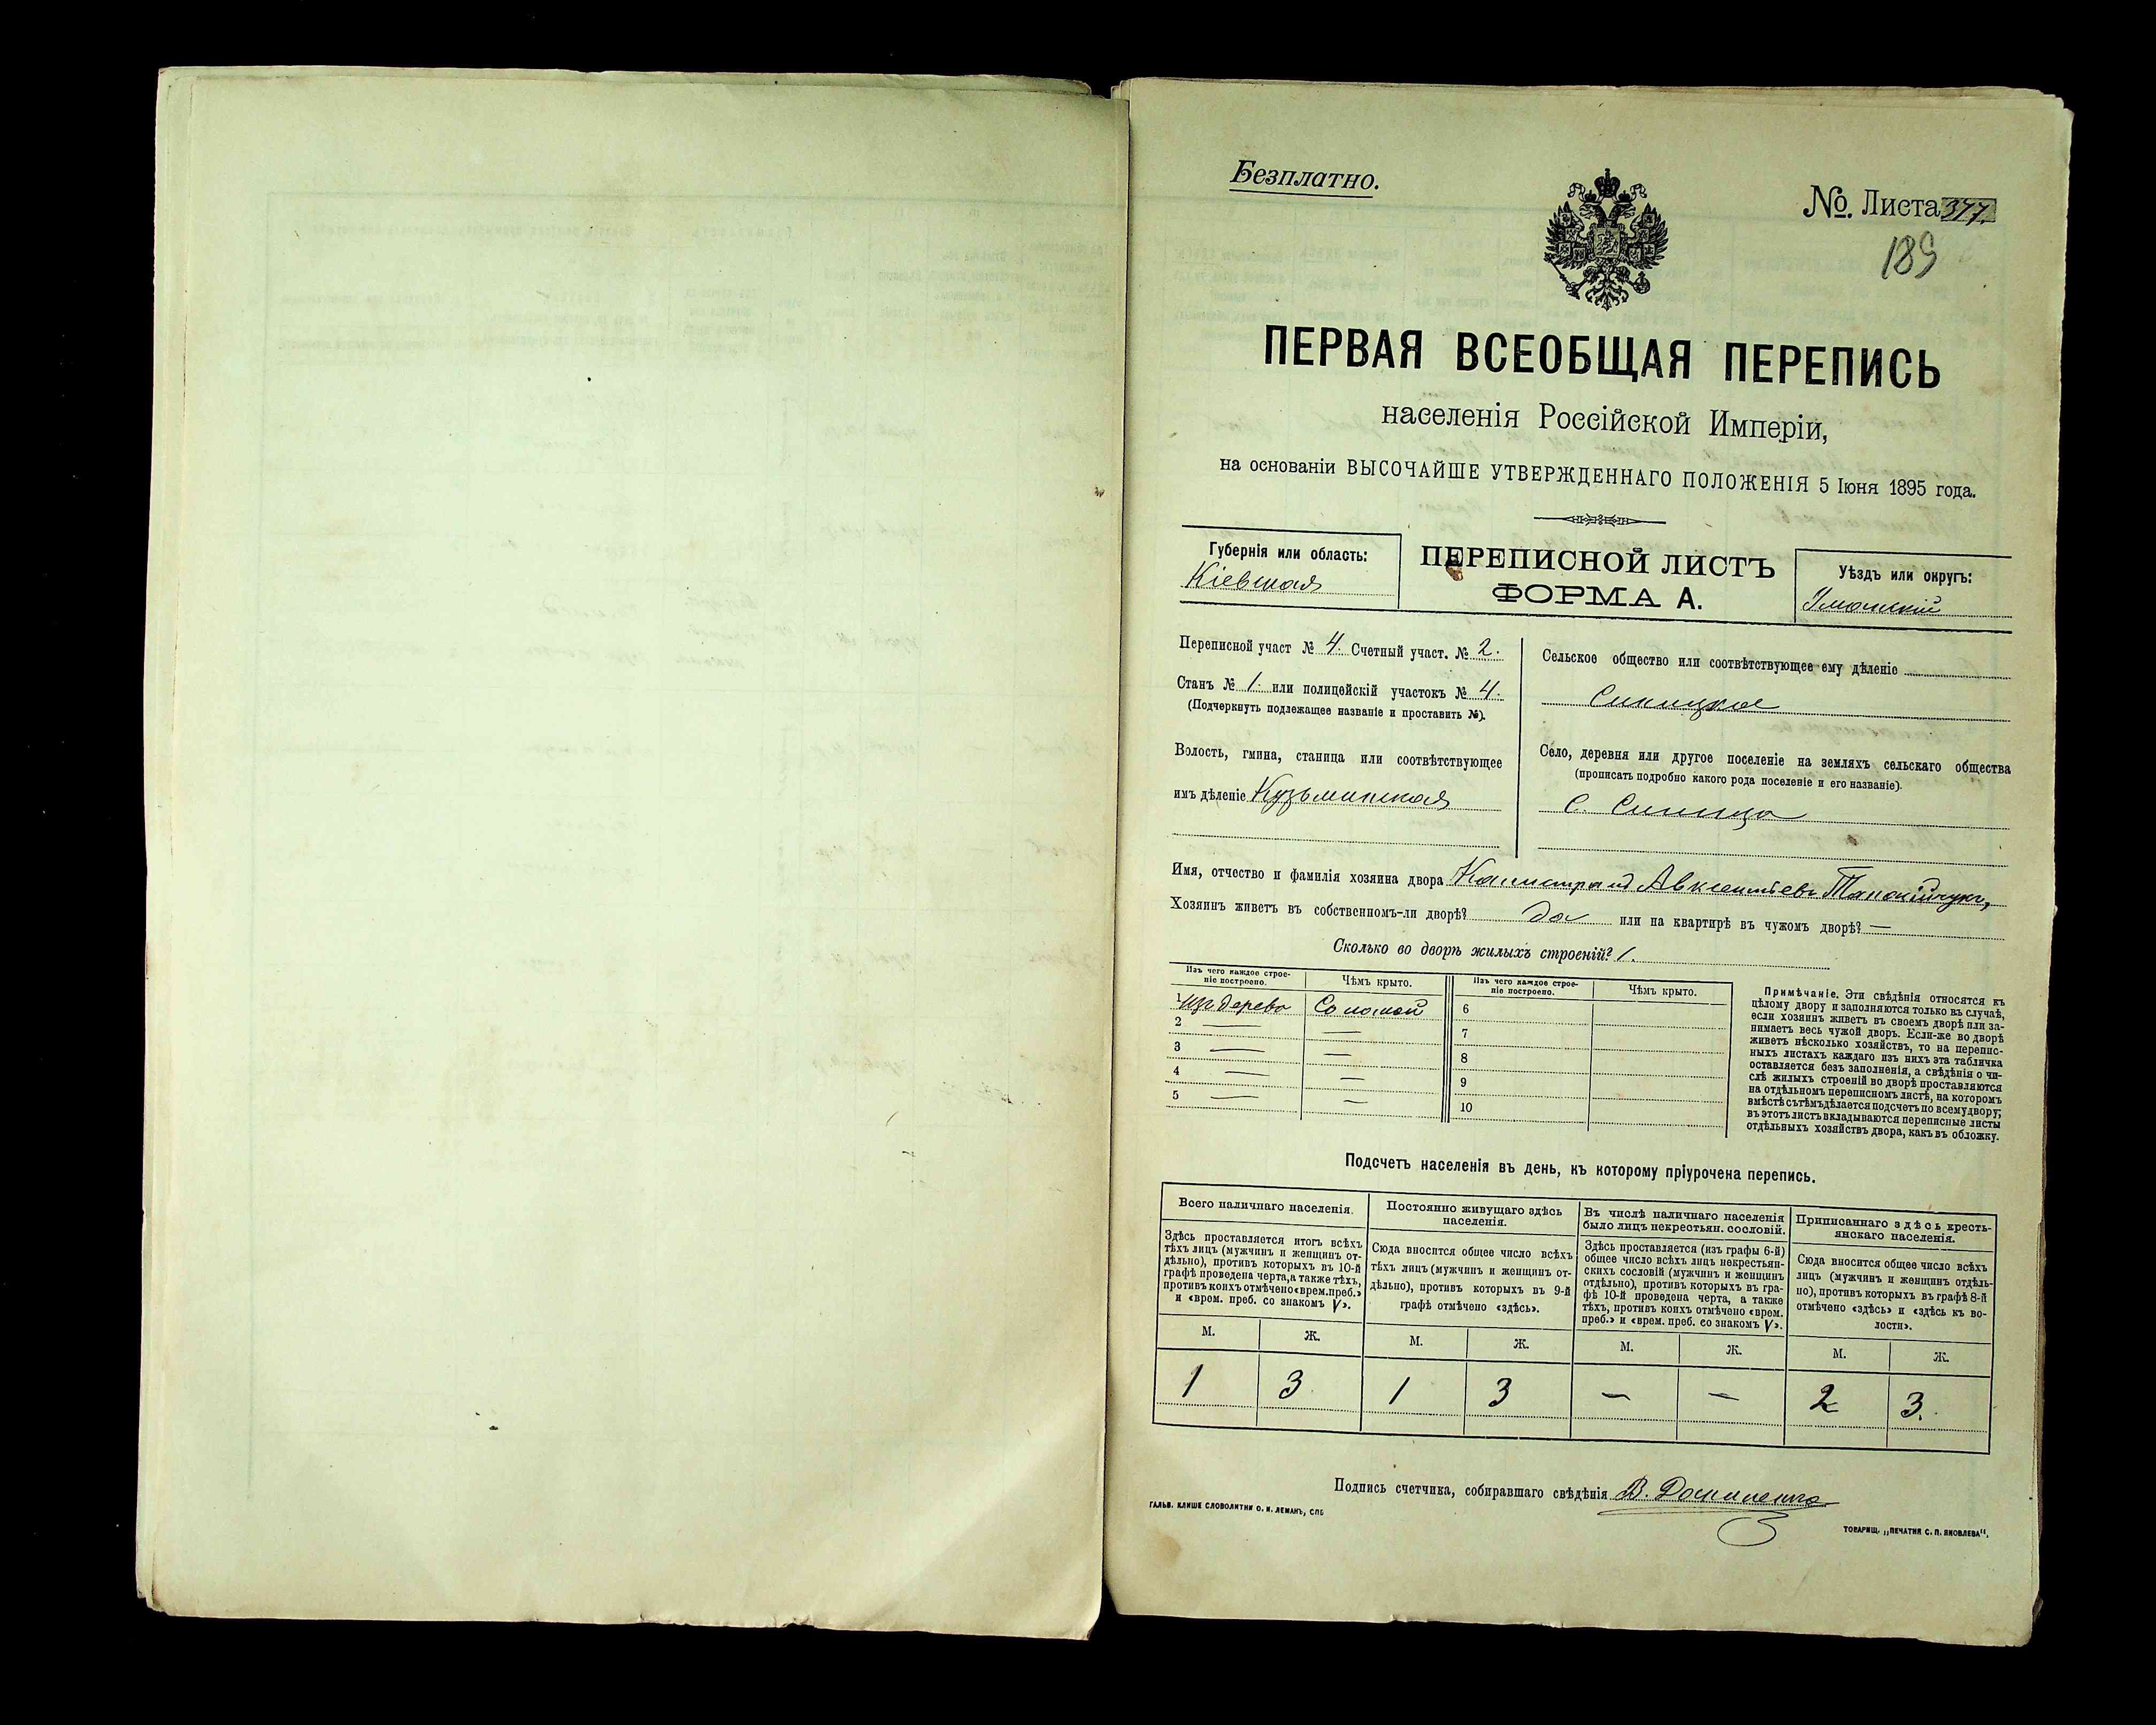 Безплатно.
№. Листа 377.
189
ПЕРВАЯ ВСЕОБЩАЯ ПЕРЕПИСЬ
населенія Россійской Имперіи,
на основаніи ВЫСОЧАЙШЕ УТВЕРЖДЕННАГО ПОЛОЖЕНІЯ 5 Іюня 1895 года.
Губернія или область:
Кіевская
ПЕРЕПИСНОЙ ЛИСТЪ
ФОРМА А.
Уѣздъ или округъ:
Уманскій
Переписной участ № 4. Счетный участ. № 2.
Станъ № 1. или полицейскій участокъ № 4.
(Подчеркнуть подлежащее названіе и проставить №).
Волость, гмина, станица или соотвѣтствующее
имъ дѣленіе Кузьминская
Сельское общество или соотвѣтствующее ему дѣленіе
Синицкое
Село, деревня или другое поселеніе на земляхъ сельскаго общества
(прописать подробно какого рода поселеніе и его названіе).
С. Синица
Имя, отчество и фамилія хозяина двора Калистратъ Авксентіевъ
Хозяинъ живетъ въ собственномъ-ли дворѣ? да или на квартирѣ въ чужомъ дворѣ? —
Сколько во дворѣ жилыхъ строеній? 1.
Изъ чего каждое строе-
ніе построено.
Чѣмъ крыто.
Изъ чего каждое строе-
ніе построено.
Чѣмъ крыто.
1 изъ дерева Соломой 6
2 — — 7
3 — — 8
4 — — 9
5 — — 10
Примѣчаніе. Эти свѣдѣнія относятся къ
цѣлому двору и заполняются только въ случаѣ,
если хозяинъ живетъ въ своемъ дворѣ или за-
нимаетъ весь чужой дворъ. Если-же во дворѣ
живетъ нѣсколько хозяйствъ, то на перепис-
ныхъ листахъ каждаго изъ нихъ эта табличка
оставляется безъ заполненія, а свѣдѣнія о чи-
слѣ жилыхъ строеній во дворѣ проставляются
на отдѣльномъ переписномъ листѣ, на которомъ
вмѣстѣ съ тѣмъ дѣлается подсчетъ по всему двору;
въ этотъ листъ вкладываются переписные листы
отдѣльныхъ хозяйствъ двора, какъ въ обложку.
Подсчетъ населенія въ день, къ которому пріурочена перепись.
Всего наличнаго населенія.
Здѣсь проставляется итогъ всѣхъ
тѣхъ лицъ (мужчинъ и женщинъ от-
дѣльно), противъ которыхъ въ 10-й
графѣ проведена черта, а также тѣхъ,
противъ коихъ отмѣчено «врем. преб.»
и «врем. преб. со знакомъ V».
Постоянно живущаго здѣсь
населенія.
Сюда вносится общее число всѣхъ
тѣхъ лицъ (мужчинъ и женщинъ от-
дѣльно), противъ которыхъ въ 9-й
графѣ отмѣчено «здѣсь».
Въ числѣ наличнаго населенія
было лицъ некрестьян. сословій.
Здѣсь проставляется (изъ графы 6-й)
общее число всѣхъ лицъ некрестьян-
скихъ сословій (мужчинъ и женщинъ
отдѣльно), противъ которыхъ въ гра-
фѣ 10-й проведена черта, а также
тѣхъ, противъ коихъ отмѣчено «врем.
преб.» и «врем. преб. со знакомъ V».
Приписаннаго здѣсь кресть-
янскаго населенія.
Сюда вносится общее число всѣхъ
лицъ (мужчинъ и женщинъ отдѣль-
но), противъ которыхъ въ графѣ 8-й
отмѣчено «здѣсь» и «здѣсь къ во-
лости».
М. Ж. М. Ж. М. Ж. М. Ж.
1 3 1 3 — — 2 3.
Подпись счетчика, собиравшаго свѣдѣнія В.
ГАЛЬВ. КЛИШЕ СЛОВОЛИТНИ О. И. ЛЕМАНЪ, СПБ
ТОВАРИЩ. „ПЕЧАТНЯ С. П. ЯКОВЛЕВА“.